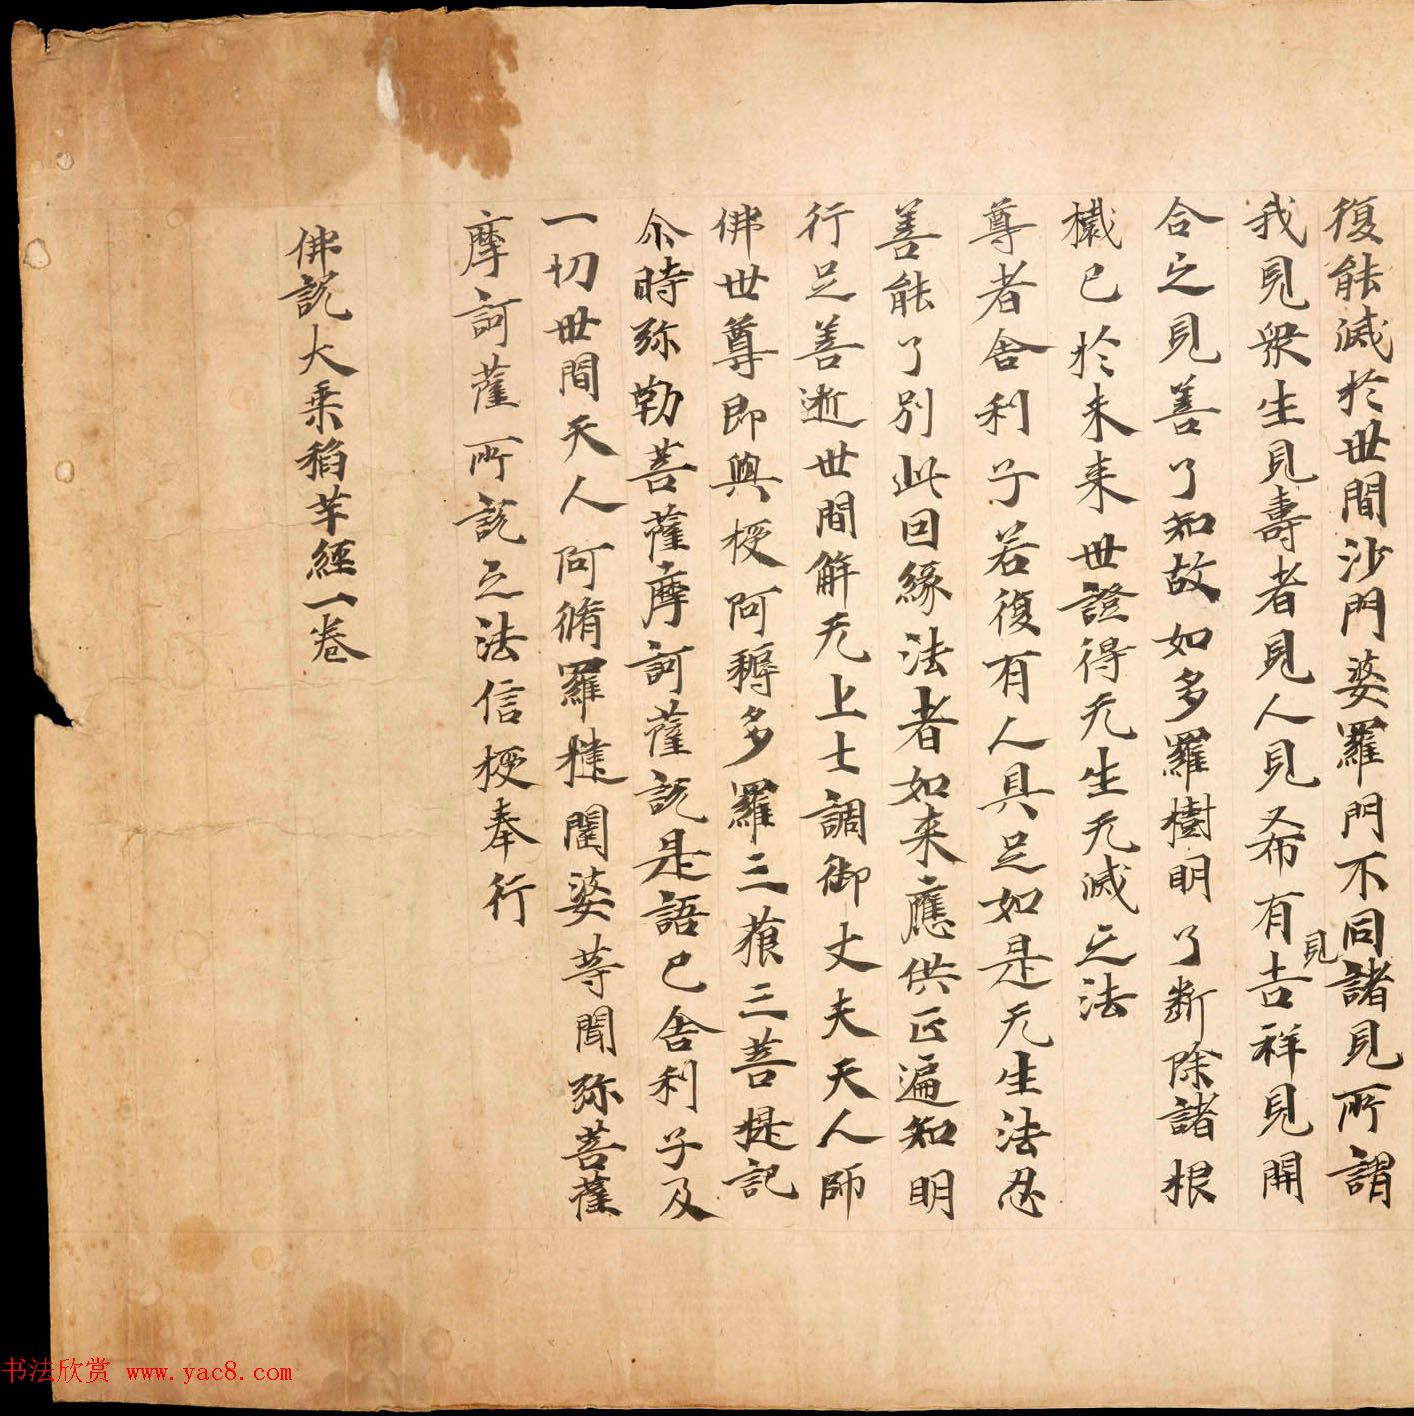 復能滅於世間沙門婆羅門不同諸見所謂
我見衆生見壽者見人見希有見吉祥見開
合之見善了知故如多羅樹明了斷除諸根
栽已於未来世證得无生无滅之法
尊者舍利子若復有人具足如是无生法忍
善能了別此因緣法者如来應供正遍知明
行足善逝世間解无上士調御丈夫天人師
佛世尊即與授阿耨多羅三藐三菩提記
尒時弥勒菩薩摩訶薩說是語已舍利子及
一切世間天人阿脩羅揵闥婆等聞弥菩薩
摩訶薩所說之法信授奉行
佛說大乘稻芉經一卷
书法欣赏 www.yac8.com